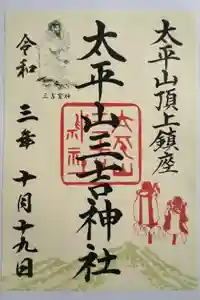 太平山頂上鎮座
太平山三吉神社
三吉霊神
令和三年十月十九日